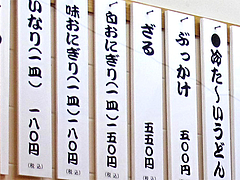 ●冷た~いうどん
ぶっかけ 五〇〇円
ざる 五五〇円
白おにぎり(一皿) 一一〇円(税込)
味おにぎり(一皿) 一八〇円(税込)
いなり(一皿) 一八〇円(税込)